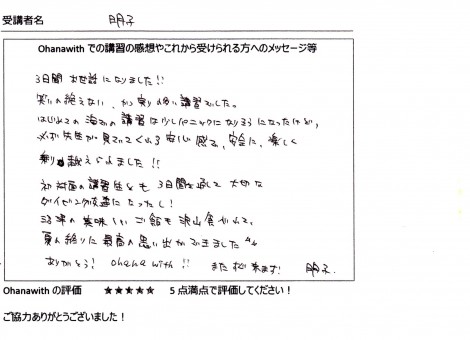 受講者名 明子
Ohanawith での講習の感想やこれから受けられる方へのメッセージ等
3日間 お世話になりました!!
笑いの絶えない、かつ実り多い講習でした。
はじめての海での講習は少しパニックになりそうになったけど、
必ず先生が見ていてくれる安心感で、安全に、楽しく
乗り越えられました!!
初対面の講習生とも 3日間を通して 大切な
ダイビング友達になったし!
沼津の美味しいご飯も沢山食べれて、
夏の終りに最高の思い出ができました^^
ありがとう! ohana with!! また 来ます! 明子
Ohanawith の評価 ★★★★★ 5 点満点で評価してください!
ご協力ありがとうございました!